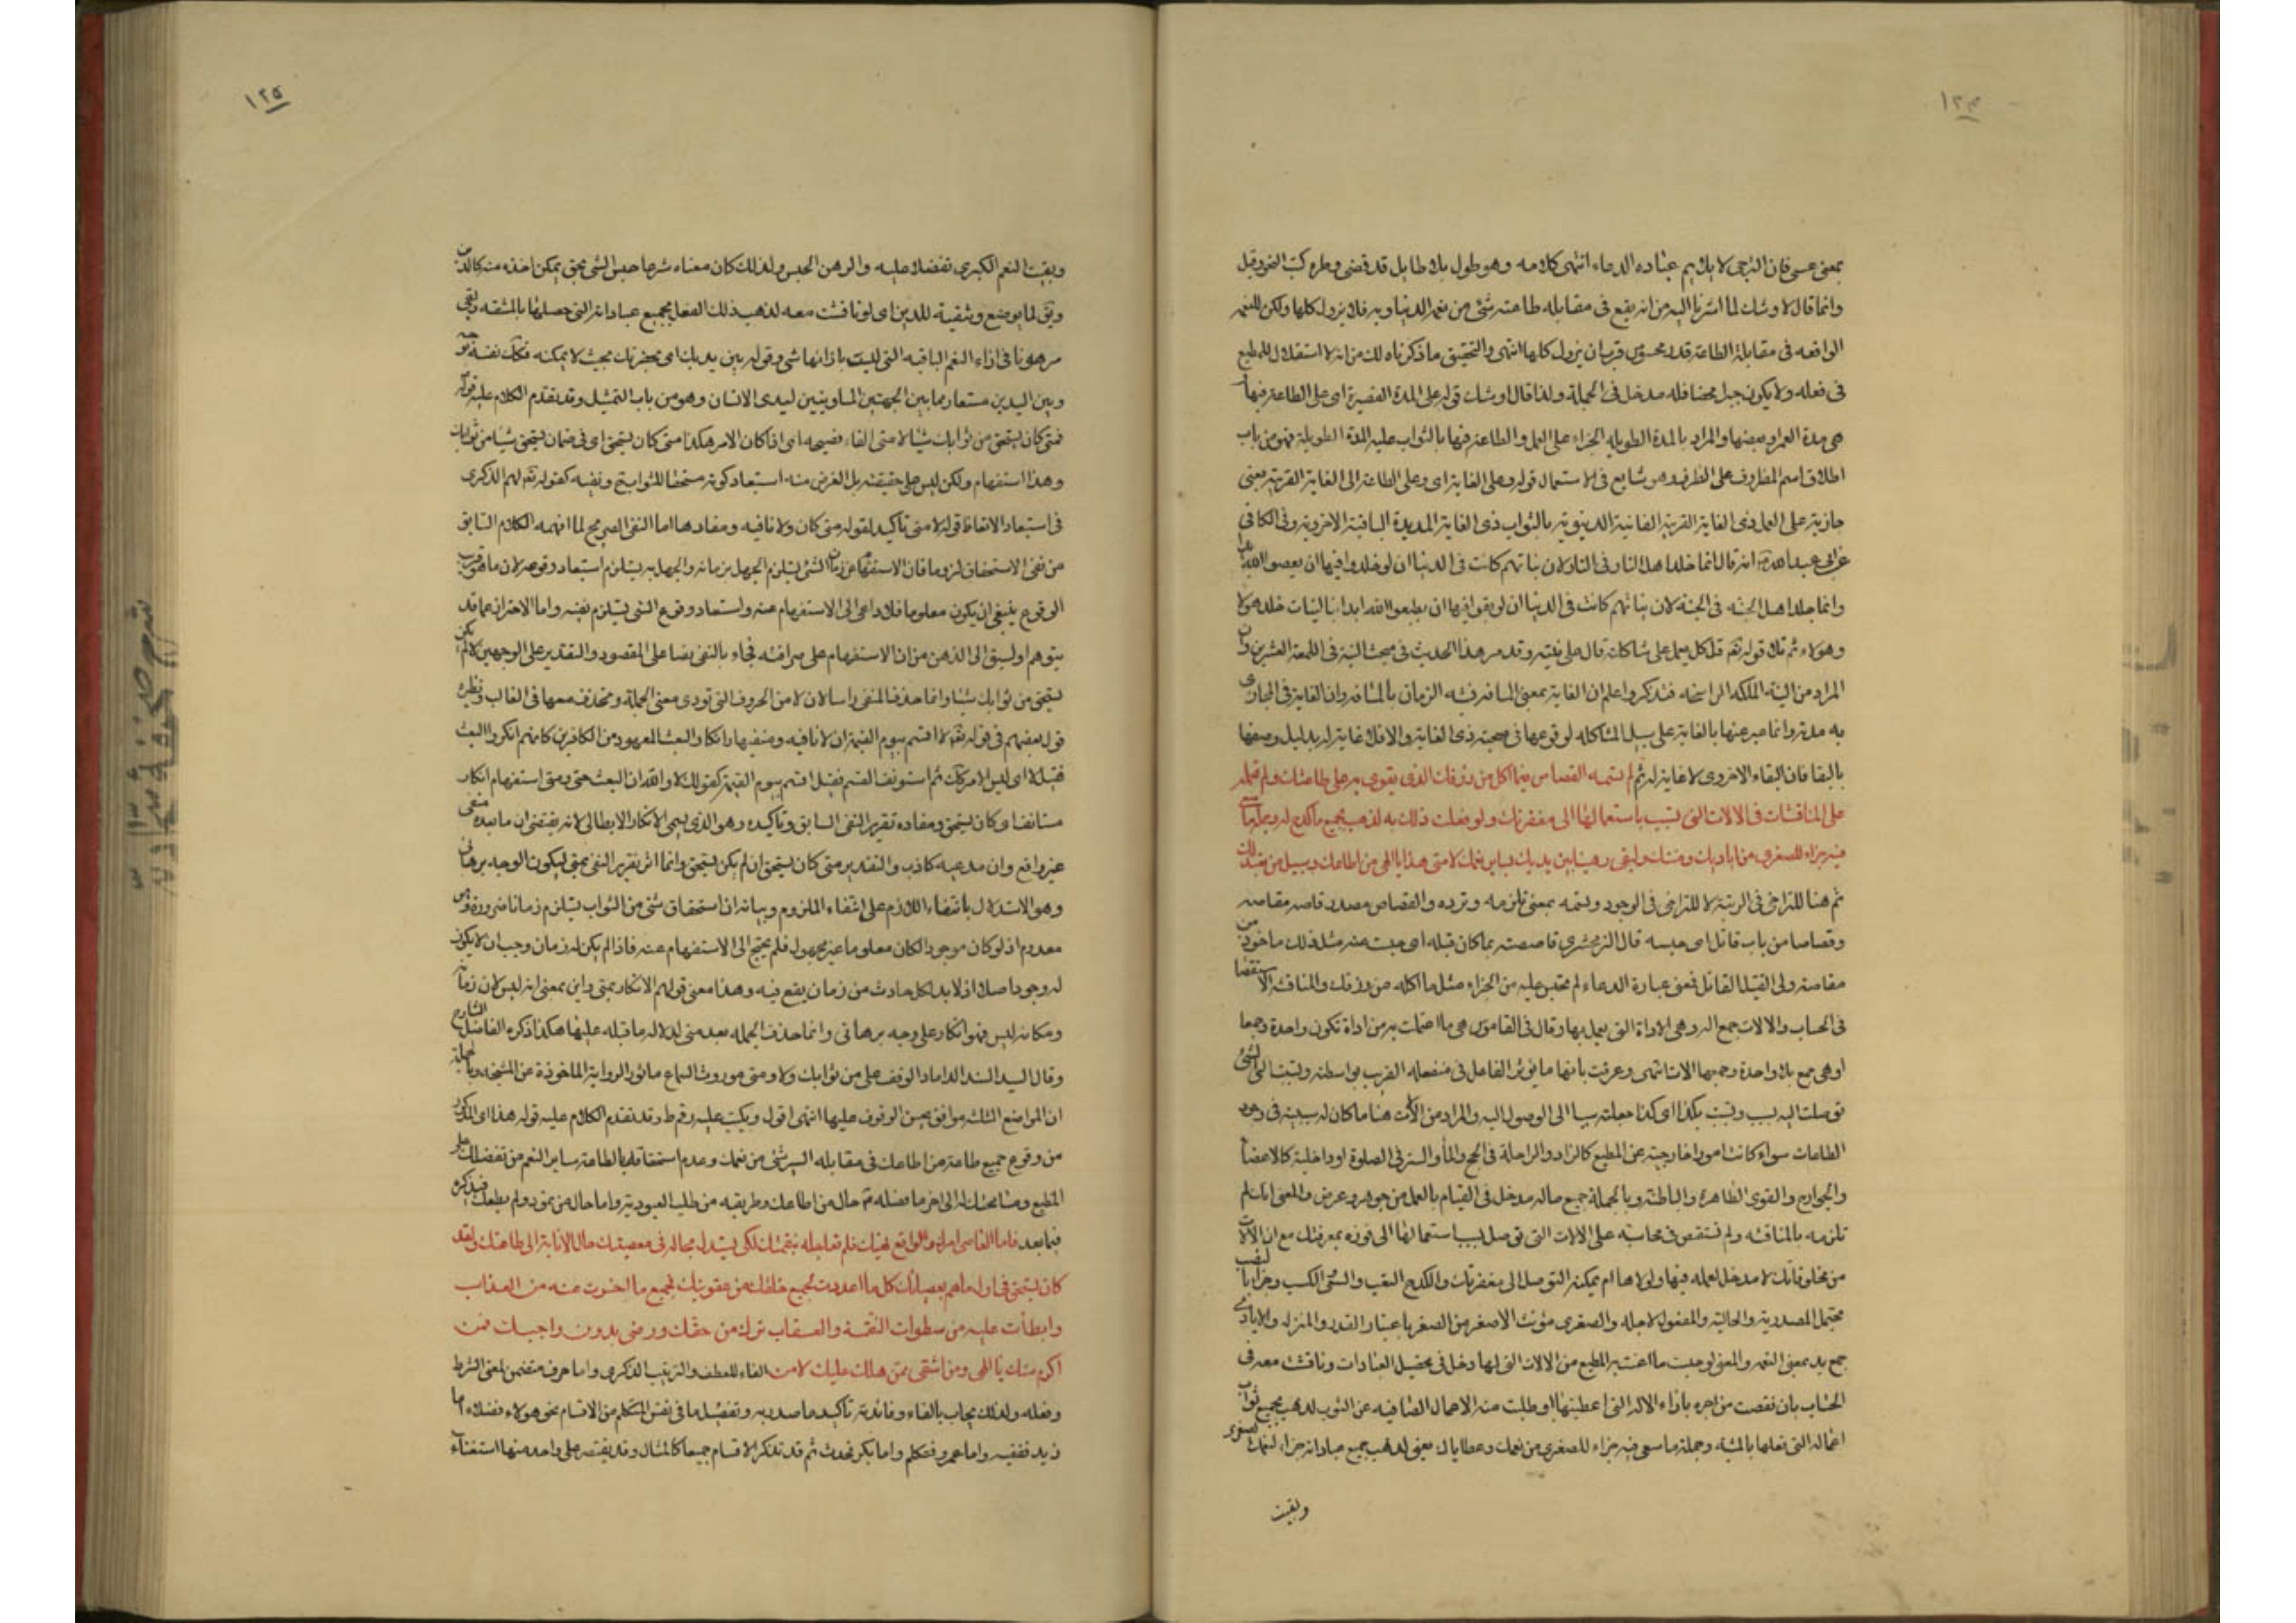 ١٢٤
بمعنى عسى فان الترجى لا يلايم عبارة الدعاء انتهى كلامه وهو طول بلا طايل قد قضى وطره كتب النحو وقيل
وانما قال اوشك لما اشرنا اليه من انه يقع فى مقابله طاعته شئ من نعم الدنيا وبه فلا يزول كلها ولكن للنعم
الواقعه فى مقابلة الطاعة قدر محسوس قرب ان يزول كلها انتهى والتحقيق ما ذكرناه لك من انه لا استقلال للمطيع
فى فعله ولا يكون جبرا محضا فله مدخل فى الجملة ولذا قال اوشك قوله على المدة القصيرة اى على الطاعة فيها
هى مدة العمر او بعضها والمراد بالمدة الطويله الجزاء على العمل والطاعة فيها بالثواب عليه المدة الطويلة فهو من باب
اطلاق اسم المظروف على الظرف وهو شايع فى الاستعمال قوله وعلى الغاية اى وعلى الطاعة الى الغاية القريبة يعنى
جازيته على العمل ذى الغاية القريبة الفانية الدنيوية بالثواب ذى الغاية المديدة الباقية الاخروية وفى الكافى
عن ابى عبد الله انه قال انما خلد اهل النار فى النار لان نياتهم كانت فى الدنيا ان لو خلدوا فيها ان يعصوا الله ابدا
وانما خلد اهل الجنة فى الجنة لان نياتهم كانت فى الدنيا ان لو بقوا فيها ان يطيعوا الله ابدا فبالنيات خلد هولاء
وهولاء ثم تلا قوله تعه قل كل يعمل على شاكلته قال على نيته وقد مر هذا الحديث فى مبحث النية فى اللمعة العشرين وان
المراد من النية الملكه الراسخه فتذكر واعلم ان الغاية بمعنى المسافة فشبه الزمان بالمسافه وان الغاية فى المجازى
به مدته وانما عبر عنها بالغاية على سبيل المشاكله لوقوعها فى صحبة ذى الغاية والا فلا غاية له بدليل وصفها
بالبقا فان البقاء الاخروى لا غاية له ثم لم تسمه القصاص فيما اكل من رزقك الذى يقوى به على طاعتك ولم تحمله
على المناقشات فى الالات التى تسبب باستعمالها الى مغفرتك ولو فعلت ذلك به لذهب بجميع ما كدح له وجملة ما سعى
فيه جزاء للصغرى من اياديك ومننك ولبقى رهينا بين يديك بساير نعمك لا متى هذا يا الهى من اطاعك وسبيل من تعبد لك
ثم هنا للتراخى فى الرتبة لا للتراخى فى الوجود وتسمه بمعنى تلزمه وترده والقصاص مصدر قاصه مقاصه
وقصاصا من باب قاتل اى حبسه قال الزمخشرى قاصصته بما كان قبله اى حبست عنه مثل ذلك ماخوذ من
مقاصة ولى القتيل القاتل فمعنى عبارة الدعاء لم تحبس عليه من الجزاء مثل ما اكله من رزقك والمناقشة الاستقصا
فى الحساب والالات جمع اله وهى الاداة التى يعمل بها وقال فى القاموس هى ما اعتملت به من اداة تكون واحدة وجمعا
اوهى جمع بلا واحدة وجمعها الات انتهى وعرفت بانها ما يؤثر الفاعل فى منفعله القريب بواسطته وتسبب الى الشئ
توصلت اليه بسبب وتسبب بكذا اى كذا جعلته سببا الى الوصول اليه والمراد من الآلات هنا ما كان له سببية فى وجود
الطاعات سواء كانت امورا خارجية عن المطيع كالزاد والراحلة فى الحج والماء والستر فى الصلوة او داخلية كالاعضاء
والجوارح والقوى الظاهرة والباطنة وبالجملة جميع ماله مدخل فى القيام بالعمل من جوهر وعرض والمعنى انك لم
تلزمه بالمناقشه ولم تستقص فى محاسبته على الالات التى توصل بسبب استعمالها الى فوزه بمغفرتك مع ان الالات
من مخلوقاتك لا مدخل لعمله فيها ولولاها لم يمكنه التوصل الى مغفرتك والكدح التعب والسعى الكسب وجزاء بالنصب
محتمل المصدرية والحالية والمفعول لاجله والصغرى مؤنث الاصغر من الصغر باعتبار القدر والمنزله والايادى
جمع يد بمعنى النعمه والمعنى لو حسبت ما اعنت به المطيع من الالات التى لها دخل فى تحصيل العبادات وناقشت معه فى
الحساب بان نقصت من اجره بازاء الاله التى اعطيتها او طلبت منه الاعمال الصافيه عن الشوب لذهب بجميع ثواب
اعماله التى تعلها بالمشقه وجملة ما سعى فيه جزاء للصغرى من نعمك وعطاياك يعنى لذهب جميع عباداته جزاء لنعمك الصغرى
وبقيت
١٢٥
وبقيت النعم الكبرى تفضلا عليه والرهن الحبس ولذلك كان معناه شرعا حبس الشئ بحق يمكن اخذه منه كالدين
ويق لما يوضع وثيقة للدين اى لو ناقشت معه لذهب ذلك الفعل بجميع عباداته التى حصلها بالمشقه وبقى
مرهونا فى ازاء النعم الباقيه التى ليست بازائها شئ وقوله بين يديك اى بحضرتك بحيث لا يمكنه فكاك نفسه
وبين اليدين مستعار مما بين الجهتين المساويتين ليدى الانسان وهو من باب التمثيل وقد تقدم الكلام عليه قوله
فمتى كان يستحق من ثوابك شيئا لا متى الفاء فصيحه اى اذا كان الامر هكذا متى كان يستحق اى فى ضمان يستحق شيئا من ثوابك
وهذا استفهام ولكن ليس على حقيقته بل الغرض منه استبعاد كونه مستحقا للثواب ونفيه كقوله تعه انى لهم الذكرى
فى استبعاد الاتعاظ قوله لا متى تأكيد لقوله متى كان ولا نافيه ومفادها اما النفى الصريح لما افهمه الكلام السابق
من نفى الاستحقاق لزوما فان الاستفهام عن زمان الشئ يستلزم الجهل بزمانه والجهل به يستلزم استبعاد وقوعه لان ما هو قريب
الوقوع ينبغى ان يكون معلوما فلا داعى الى الاستفهام عنه واستبعاد وقوع الشئ يستلزم نفيه واما الاحتراز عما قد
يتوهم او يسبق الى الذهن من ان الاستفهام على صرافته فجاء بالنفى نصا على المقصود والتقدير على الوجهين لا لم يكن
يستحق من ثوابك شيئا وانما حذف المنفى راسا لان لا من الحروف التى تودى معنى الجملة وتحذف معها فى الغالب ونظيره
قول بعضهم فى قوله تعه لا اقسم بيوم القيمة ان لا نافيه ومنفيها انكار البعث المعهود من الكافرين كانهم انكروا البعث
فقيل لا اى ليس الامر كك ثم استونف القسم فقيل اقسم بيوم القيمة كقولك لا والله ان البعث حق ومتى استفهام انكار
مستانف اى كان يستحق ومفاده تقرير النفى السابق وتأكيده وهو الذى يسمى الانكار الابطالى لانه يقتضى ان ما بعده منفى
غير واقع وان مدعيه كاذب والتقدير متى كان يستحق اى لم يكن يستحق وانما اثر تقرير النفى بمتى ليكون الوجه برهانى
وهو الاستدلال بانتفاء اللازم على انتفاء الملزوم وبيانه ان استحقاق شئ من الثواب يستلزم زمانا ضرورة وهو
معدوم اذ لو كان موجودا لكان معلوما غير مجهول فلم يحتج الى الاستفهام عنه فاذا لم يكن له زمان وجب ان لا يكون
له وجودا صلا اذ لا بد لكل حادث من زمان يقع فيه وهذا معنى قولهم الانكار بمتى واين بمعنى انه ليس لان زمانه
ومكانه ليس فهو انكار على وجه برهانى وانما حذف الجمله بعد متى لدلاله ما قبله عليها هكذا ذكره الفاضل الشارح
وقال السيد السند الداماد الوقف على من ثوابك ولا ومتى موروث السماع ماثور الرواية الماخوذة عن المشيخه وبالجملة
ان المواضع الثلثه مواقع يحسن الوقوف عليها انتهى اقول ويكتب عليه رقم ط وقد تقدم الكلام عليه قوله هذا اى المذكور
من وقوع جميع طاعته من اطاعك فى مقابله اليسير شئ من نعمك وعدم استحقاقه بالطاعة ساير النعم من تفضلك على
المطيع ومسامحتك له الى اخر ما فصله حال من اطاعك وطريقه من طلب العبودية واما حال من تمرد ولم يطعك فيذكره
فيما بعد فاما العاصى امرك والمواقع نهيك فلم تعاجله بنقمتك لكى يستبدل بحاله فى معصيتك حال الانابة الى طاعتك ولقد
كان يستحق فى اول ما هم بعصيانك كل ما اعددت لجميع خلقك من عقوبتك فجميع ما اخرت عنه من العذاب
وابطأت عليه من سطوات النقمة والعقاب ترك من حقك ورضى بدون واجبك فمن
اكرم منك يا الهى ومن اشقى ممن هلك عليك لا من الفاء للعطف والترتيب الذكرى واما حرف متضمن لمعنى الشرط
وفعله ولذلك يجاب بالفاء وفائدته تأكيد ما صدر به وتفصيل ما فى نفس المتكلم من الاقسام نحو هولاء فضلاء اما
زيد ففقيه واما عمرو فمتكلم واما بكر فمحدث ثم قد تذكر الاقسام جميعا كالمثال وقد يقتصر على واحد منها استغناء